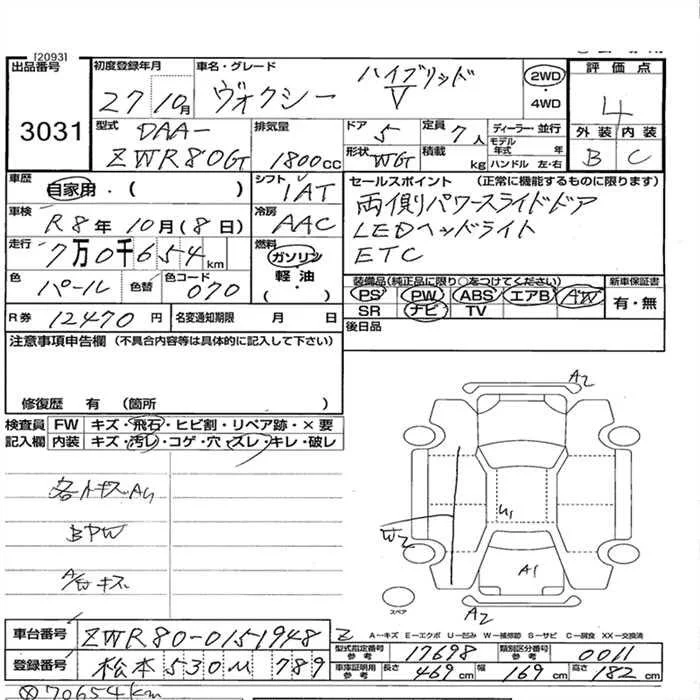 [2093]
出品番号
3031
初度登録年月
27 10月
車名・グレード
ヴォクシー ハイブリッド V
2WD
・
4WD
評価点
4
外装 内装
B C
型式
DAA-
ZWR80GT
排気量
1800cc
ドア 5
形状 WGT
定員 7人
積載 kg
ディーラー・並行
モデル年式 年
ハンドル 左・右
車歴
自家用・( )
シフト
IAT
セールスポイント (正常に機能するものに限ります)
両側パワースライドドア
LEDヘッドライト
ETC
車検
R8年10月(8日)
冷房
AAC
走行
7万0千654km
燃料
ガソリン
軽油
( ・ )
色
パール
色替
色コード
070
装備品(純正品に限り○をつけてください)
PS PW ABS エアB AW
SR ナビ TV
新車保証書
有・無
R券 12470円
名変通知期限 月 日
後日品
注意事項申告欄(不具合内容等は具体的に記入して下さい)
修復歴 有 (箇所 )
検査員記入欄
FW キズ・飛石・ヒビ割・リペア跡・×要
内装 キズ・汚レ・コゲ・穴・スレ・キレ・破レ
各トキズAU
BPW
A/Wキズ
A2
W2
U1
A1
A2
スペア
A―キズ E―エクボ U―凹み W―補修跡 S―サビ C―腐食 XX―交換済
車台番号 ZWR80-0151948
登録番号 松本530 789
型式指定番号 参考 17698
類別区分番号 参考 0011
車庫証明用 参考 長さ 469cm 幅 169cm 高さ 182cm
70654km